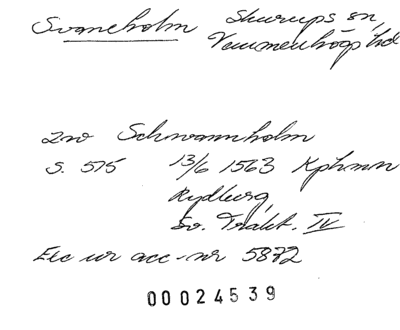 Svaneholm Skurups sn,
Vemmenhögs hd
zw Schwannholm
S. 575 13/6 1563 Kphmn
Rydberg,
Sv. Trakt. IV
Exc ur acc-nr 5872
00024539